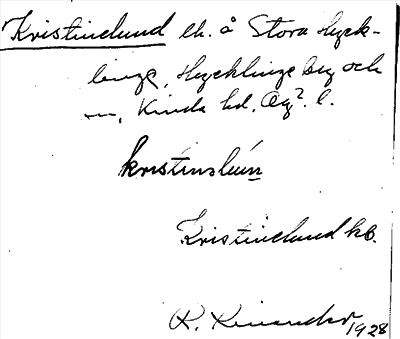 Kristinelund lh. å Stora Hyck-
linge, Hycklinge by och
—, Kinda hd. Ög. l.
kristinslún
Kristinelund hb.
K. 1928